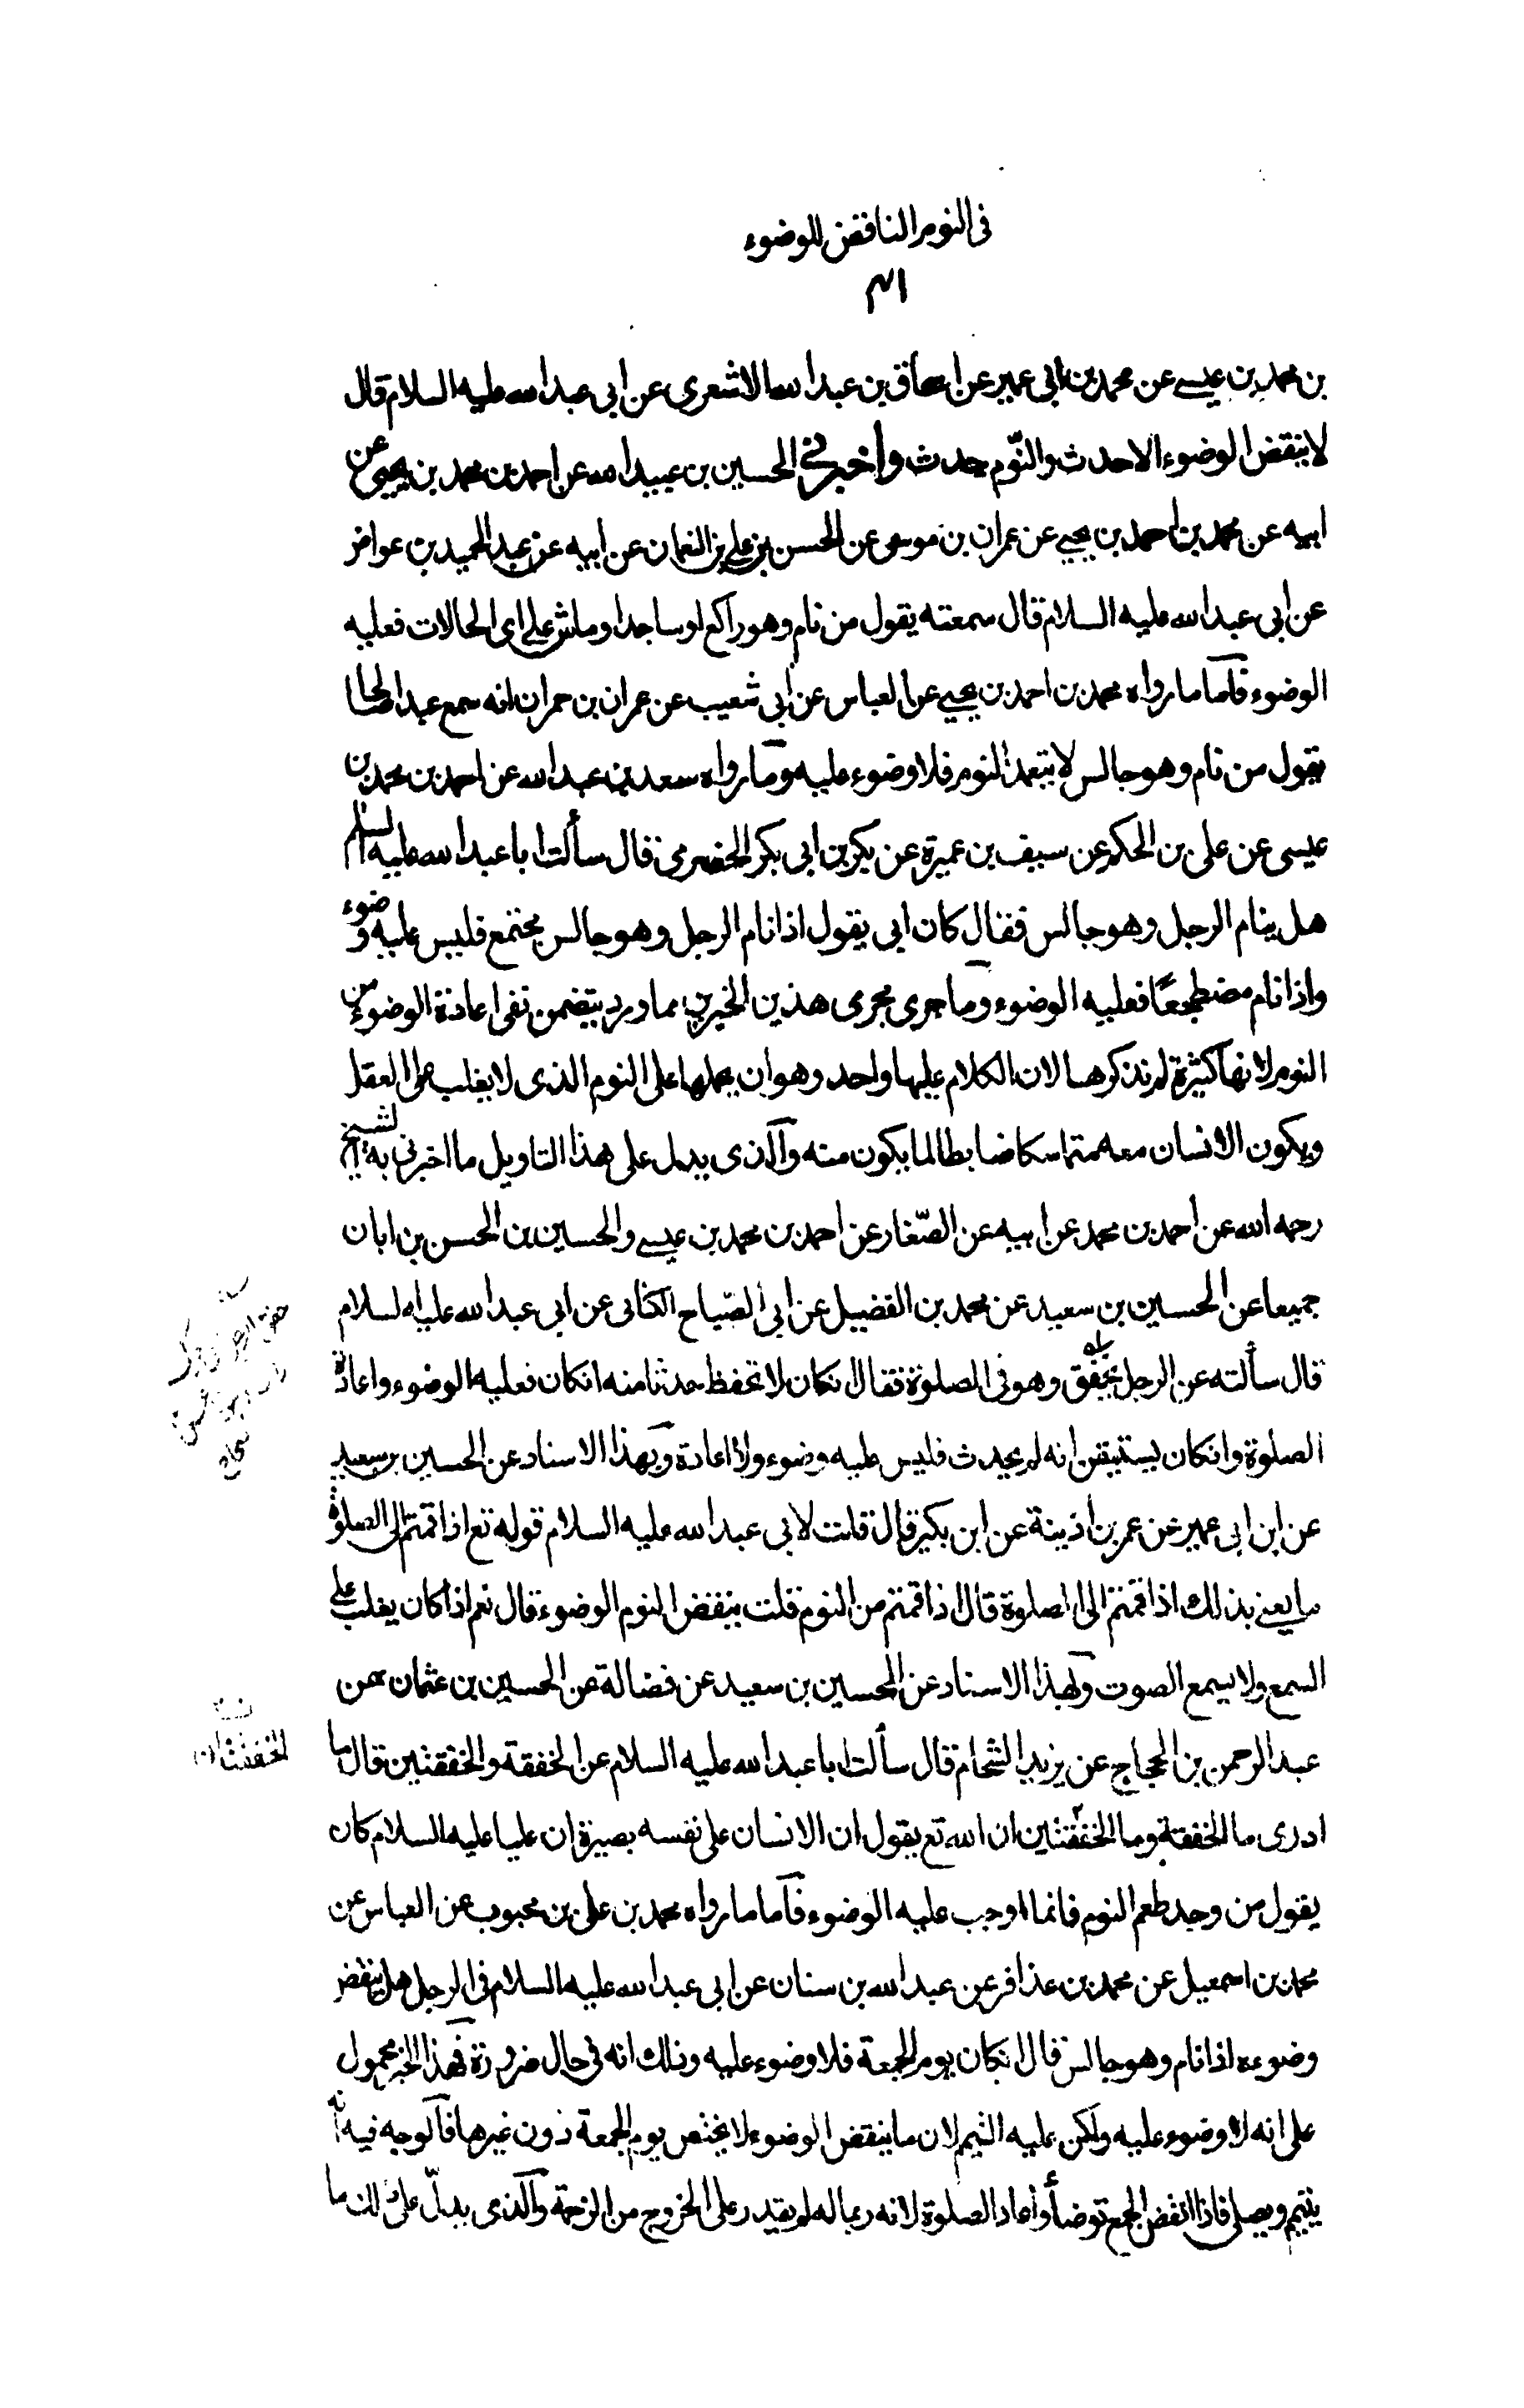 فى النوم الناقض للوضوء
٤١
بن محمد بن عيسے عن محمد بن ابى عمير عن اسحاق بن عبد الله الاشعرى عن ابى عبد الله عليه السلام قال
لا ينقض الوضوء الا حدث والنّوم حدث واخبرنے الحسين بن عبيد الله عن احمد بن محمد بن يحيى عن
ابيه عن محمد بن احمد بن يحيے عن عمران بن موسى عن الحسن بن علے بن النعمان عن ابيه عن عبد الحميد بن عواض
عن ابى عبد الله عليه السلام قال سمعته يقول من نام وهو راكع او ساجد او ماش على اى الحالات فعليه
الوضوء فآما ما رواه محمد بن احمد بن يحيے عن العباس عن ابى شعيب عن عمران بن حمران انه سمع عبدا صالحا
يقول من نام وهو جالس لا يتعمد النوم فلا وضوء عليه ومآ رواه سعد بن عبد الله عن احمد بن محمد بن
عيسى عن على بن الحكم عن سيف بن عميرة عن بكر بن ابى بكر الحضرمى قال سألت ابا عبد الله عليه السلم
هل ينام الرجل وهو جالس فقال كان ابى يقول اذا نام الرجل وهو جالس مجتمع فليس عليه وضوء
واذا نام مضطجعًا فعليه الوضوء وما جرى مجرى هذين الخبرين مما ورد يتضمن نفى اعادة الوضوء من
النوم لانها كثيرة لم نذكرها لان الكلام عليها واحد وهو ان يحملها على النوم الذى لا يغلب على العقل
ويكون الانسان معه متماسكا ضابطا لما يكون منه وآلذى يدل على هذا التاويل ما اخبرنى به الشيخ
رحمه الله عن احمد بن محمد عن ابيه عن الصّفار عن احمد بن محمد بن عيسے والحسين بن الحسن بن ابان
جميعا عن الحسين بن سعيد عن محمد بن الفضيل عن ابى الصّباح الكنانى عن ابى عبد الله عليه السلام
قال سألته عن الرجل يخفق وهو فى الصلوة فقال انكان لا تحفظ حدثا منه انكان فعليه الوضوء واعادة
الصلوة وانكان يستيقن انه لم يحدث فليس عليه وضوء ولا اعادة وبهذا الاسناد عن الحسين بن سعيد
عن ابن ابى عمير عن عمر بن اذينة عن ابن بكير قال قلت لابى عبد الله عليه السلام قوله تع اذا قمتم الى الصلوة
ما يعنے بذلك اذا قمتم الى الصلوة قال اذا قمتم من النوم قلت ينقض النوم الوضوء قال نعم اذا كان يغلب على
السمع ولا يسمع الصوت وبهذا الاسناد عن الحسين بن سعيد عن فضالة عن الحسين بن عثمان عن
عبد الرحمن بن الحجاج عن يزيد الشحام قال سألت ابا عبد الله عليه السلام عن الخفقة والخفقتين قال ما
ادرى ما الخفقة وما الخفقتين ان الله تع يقول ان الانسان على نفسه بصيرة ان عليا عليه السلام كان
يقول من وجد طعم النوم فانما اوجب عليه الوضوء فآما ما رواه محمد بن على بن محبوب عن العباس عن
محمد بن اسمعيل عن محمد بن عذافر عن عبد الله بن سنان عن ابى عبد الله عليه السلام فى الرجل هل ينقض
وضوءه اذا نام وهو جالس قال انكان يوم الجمعة فلا وضوء عليه وذلك انه فى حال ضرورة فهذا الخبر محمول
على انه لا وضوء عليه ولكن عليه التيمم لان ما ينقض الوضوء لا يختص يوم الجمعة دون غيرها فآلوجه فيه انه
يتيمم ويصلى فاذا انفض الجمع توضأ واعاد الصلوة لانه ربما له لم يقدر على الخروج من الزحمة وآلذى يدلّ على ذلك ما
الخفقتان